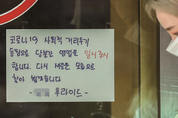 코로나19 사회적 거리두기
동참으로 당분간 영업을 일시 중지
합니다. 다시 새로운 모습으로
찾아 뵙겠습니다
- 후라이드 -